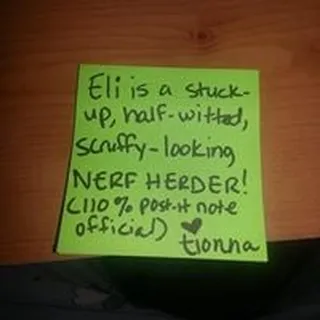 Eli is a stuck-
up, half-witted,
scruffy-looking
NERF HERDER!
(110% post-it note
official) ♥
tionna